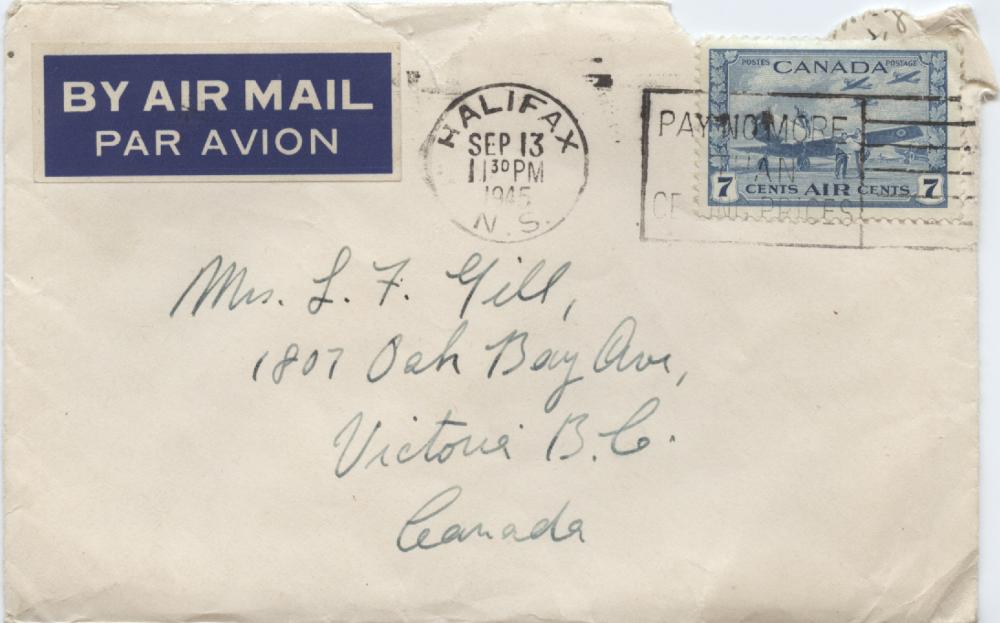 BY AIR MAIL
PAR AVION
HALIFAX
SEP 13
11 30 PM
1945
N. S.
PAY NO MORE
CEILING PRICES
POSTES CANADA POSTAGE
7 CENTS AIR CENTS 7
Mrs. L. F. Gill,
1807 Oak Bay Ave,
Victoria B.C.
Canada